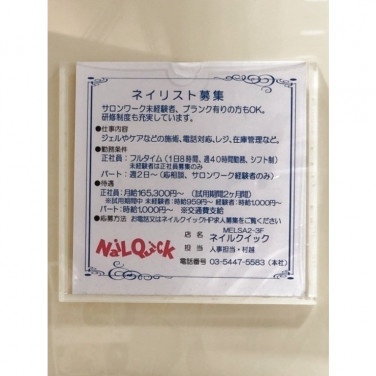 ネイリスト募集
サロンワーク未経験者、ブランク有りの方もOK。
研修制度も充実しています。
●仕事内容
ジェルやケアなどの施術、電話対応、レジ、在庫管理など。
●勤務条件
正社員：フルタイム（1日8時間、週40時間勤務、シフト制）
※未経験者は正社員募集のみ
パート：週2日～（応相談、サロンワーク経験者のみ）
●待遇
正社員：月給165,300円～（試用期間2ヶ月間）
※試用期間中 未経験者：時給959円～ 経験者：時給1,000円～
パート：時給1,000円～ ※交通費支給
●応募方法 お電話又はネイルクイックHP求人募集をご覧ください
MELSA2-3F
店名 ネイルクイック
NAiL QuicK
担当 人事担当・村越
電話番号 03-5447-5583（本社）